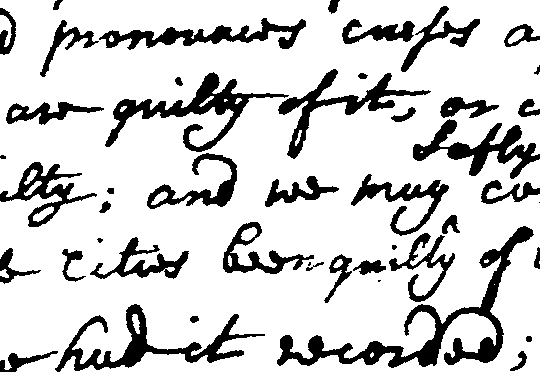 pronounces curses
are guilty of it, or
Safly
ilty; and we may co
cities been guilty of
had it recorded;